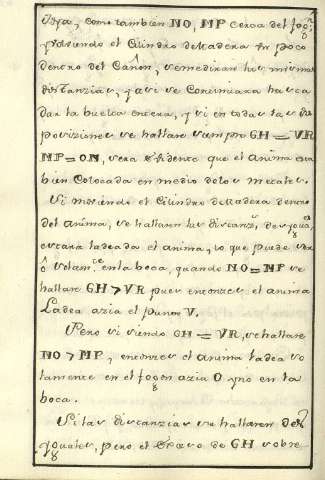 Joya, como tambien NO, MP cerca del fogn.
y haviendo el Cilindro de Madera un poco
dentro del Cañon, se mediran las mismas
distanzias, y assi se continuara hasta
dar la buelta entera, y si en todas las dis
posiziones se hallare siempre GH = VR
MP = ON, sera evidente que el anima esta
bien Colocada en medio de los metales.
Si moviendo el Cilindro de Madera dentro
del anima, se hallaren las distanzs. desyguas.
estara ladeada el anima, lo que puede ser
ô solamte. en la boca, quando NO = MP se
hallare GH > VR pues entonces el anima
Ladea azia el punto V.
Pero si siendo GH = VR, se hallare
NO > MP, entonces el anima ladea so
lamente en el fogon azia O y no en la
boca.
Si las distanzias se hallaren des
yguales, pero el exceso de GH sobre